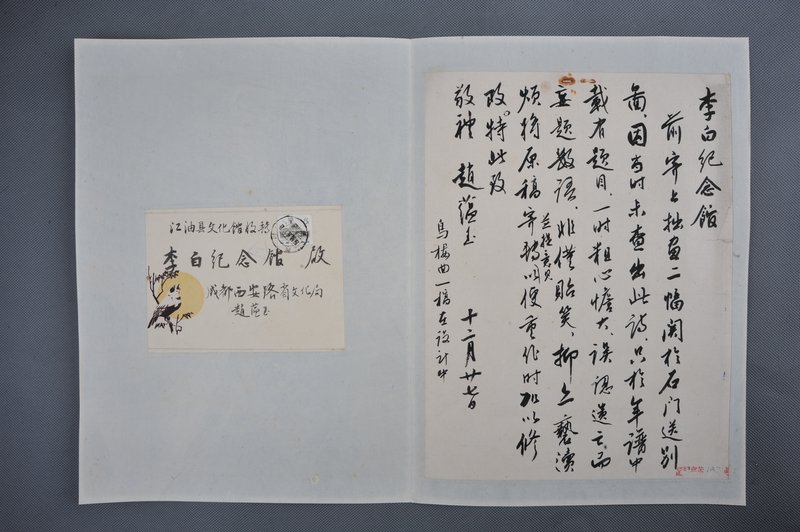 李白纪念馆
前寄上拙画二幅関於石门送别
图,因当时未查出此诗,只於年谱中
载有题目,一时粗心憺大,误认遗亡,而
妄题数语,非僅貽笑,抑亦亵渎
烦将原稿寄转以便重作时加以修
改。特此致
敬礼 趙蕴玉 十二月廿七日
乌栖曲一稿在设计中
江油县文化馆收转
李白纪念馆 啟
成都西安路省文化局
趙蕴玉